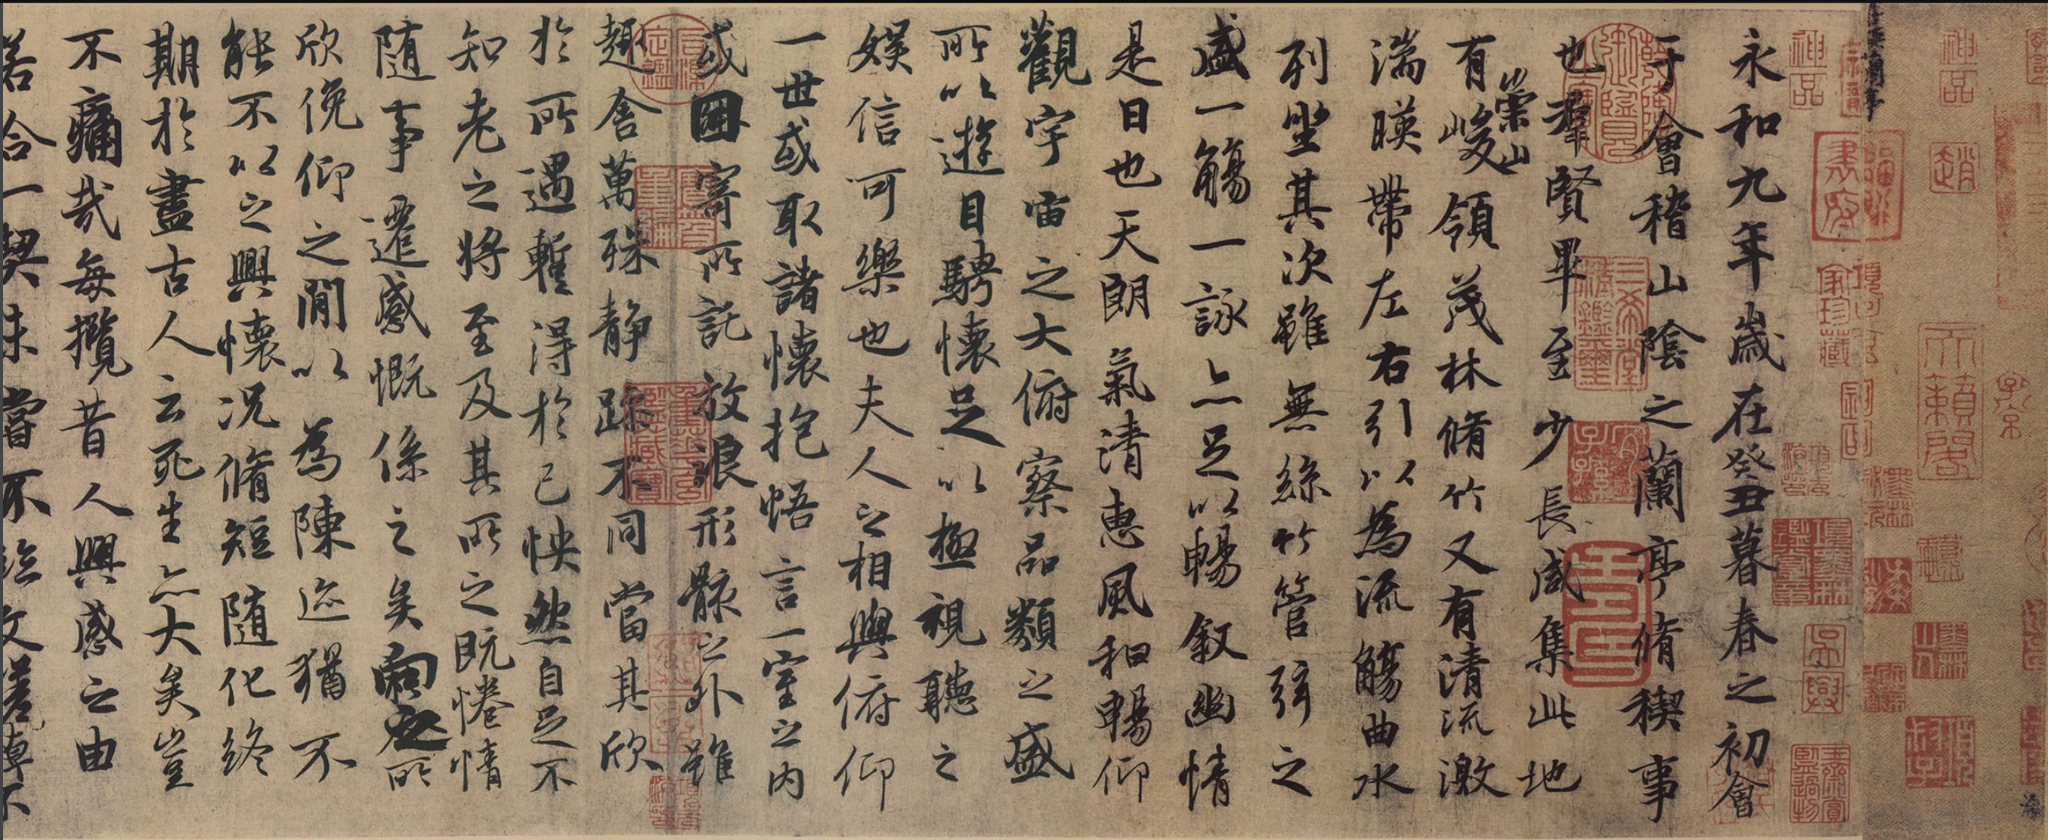 神品
天籟閣
神品
永和九年歲在癸丑暮春之初會
于會稽山陰之蘭亭脩稧事
也羣賢畢至少長咸集此地
有崇山峻領茂林脩竹又有清流激
湍暎帶左右引以為流觴曲水
列坐其次雖無絲竹管弦之
盛一觴一詠亦足以暢敘幽情
是日也天朗氣清惠風和暢仰
觀宇宙之大俯察品類之盛
所以遊目騁懷足以極視聽之
娛信可樂也夫人之相與俯仰
一世或取諸懷抱悟言一室之內
或因寄所託放浪形骸之外雖
趣舍萬殊靜躁不同當其欣
於所遇暫得於己怏然自足不
知老之將至及其所之既惓情
隨事遷感慨係之矣向之所
欣俛仰之閒以為陳迹猶不
能不以之興懷況脩短隨化終
期於盡古人云死生亦大矣豈
不痛哉每攬昔人興感之由
若合一契未嘗不臨文嗟悼不